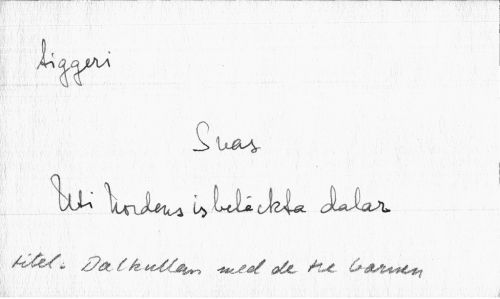 tiggeri
Svas
Uti Nordens isbeläckta dalar
titel. Dalkullan med de tre barnen